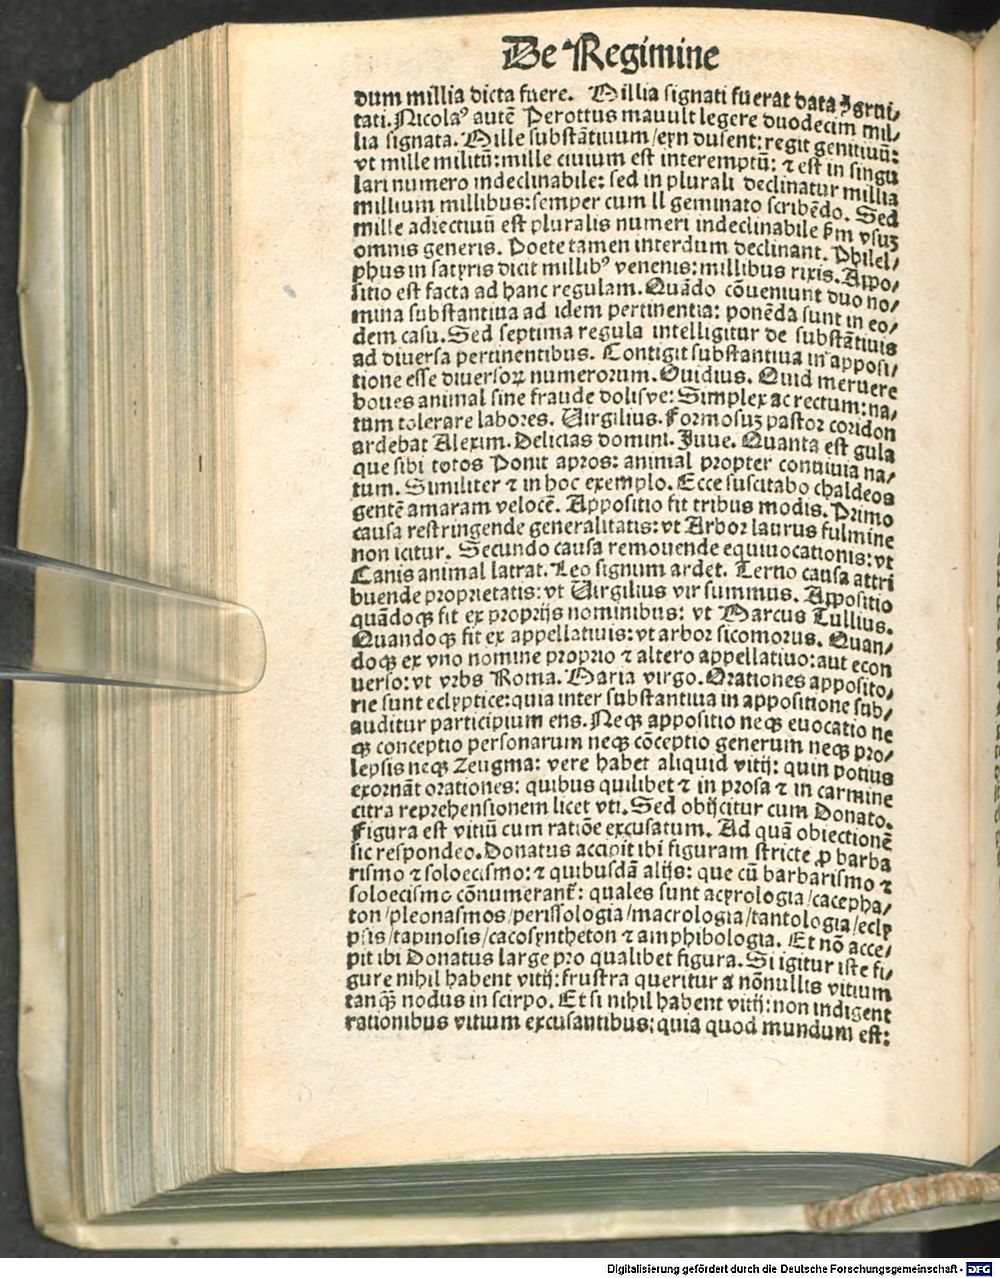 De Regimine
dum millia dicta fuere. Millia signati fuerat data
tati. Nicolaꝰ autē Perottus mauult legere duodecim mil/
lia signata. Mille substātiuum/ dusent: regit genitiuū:
vt mille militū: mille ciuium est interemptū: ⁊ est in singu
lari numero indeclinabile: sed in plurali declinatur millia
millium millibus: semper cum ll geminato scribēdo. Sed
mille adiectiuū est pluralis numeri indeclinabile ẜm vsuꝫ
omnis generis. Poete tamen interdum declinant. Philel/
phus in satyris dicit millibꝰ venenis: millibus rixis. Appo/
sitio est facta ad hanc regulam. Quādo cōueniunt duo no/
mina substantiua ad idem pertinentia: ponēda sunt in eo/
dem casu. Sed septima regula intelligitur de substātiuis
ad diuersa pertinentibus. Contigit substantiua in apposi/
tione esse diuersoꝝ numerorum. Ouidius. Quid meruere
boues animal sine fraude dolisve: Simplex ac rectum: na/
tum tolerare labores. Virgilius. Formosuꝫ pastor coridon
ardebat Alexim. Delicias domini. Juue. Quanta est gula
que sibi totos Ponit apros: animal propter conuiuia na/
tum. Similiter ⁊ in hoc exemplo. Ecce suscitabo chaldeos
gentē amaram velocē. Appositio fit tribus modis. Primo
causa restringende generalitatis: vt Arbor laurus fulmine
non icitur. Secundo causa remouende equiuocationis: vt
Canis animal latrat. Leo signum ardet. Terno causa attri
buende proprietatis: vt Virgilius vir summus. Appositio
quādoqꝫ fit ex proprijs nominibus: vt Marcus Tullius.
Quandoqꝫ fit ex appellatiuis: vt arbor sicomorus. Quan/
doqꝫ ex vno nomine proprio ⁊ altero appellatiuo: aut econ
uerso: vt vrbs Roma. Maria virgo. Orationes apposito/
rie sunt eclyptice: quia inter substantiua in appositione sub/
auditur participium ens. Neqꝫ appositio neqꝫ euocatio ne
qꝫ conceptio personarum neqꝫ cōceptio generum neqꝫ pro/
lepsis neqꝫ Zeugma: vere habet aliquid vitij: quin potius
exornāt orationes: quibus quilibet ⁊ in prosa ⁊ in carmine
citra reprehensionem licet vti. Sed obijcitur cum Donato.
Figura est vitiū cum ratiōe excusatum. Ad quā obiectionē
sic respondeo. Donatus accipit ibi figuram stricte ꝓ barba
rismo ⁊ soloecismo: ⁊ quibusdā alijs: que cū barbarismo ⁊
soloecismo cōnumerant̄: quales sunt acyrologia/cacepha/
ton/pleonasmos/perissologia/macrologia/tantologia/ecly
psis/tapinosis/cacosyntheton ⁊ amphibologia. Et nō acce/
pit ibi Donatus large pro qualibet figura. Si igitur iste fi/
gure nihil habent vitij: frustra queritur a nōnullis vitium
tanqꝫ nodus in scirpo. Et si nihil habent vitij: non indigent
rationibus vitium excusantibus: quia quod mundum est:
Digitalisierung gefördert durch die Deutsche Forschungsgemeinschaft - DFG